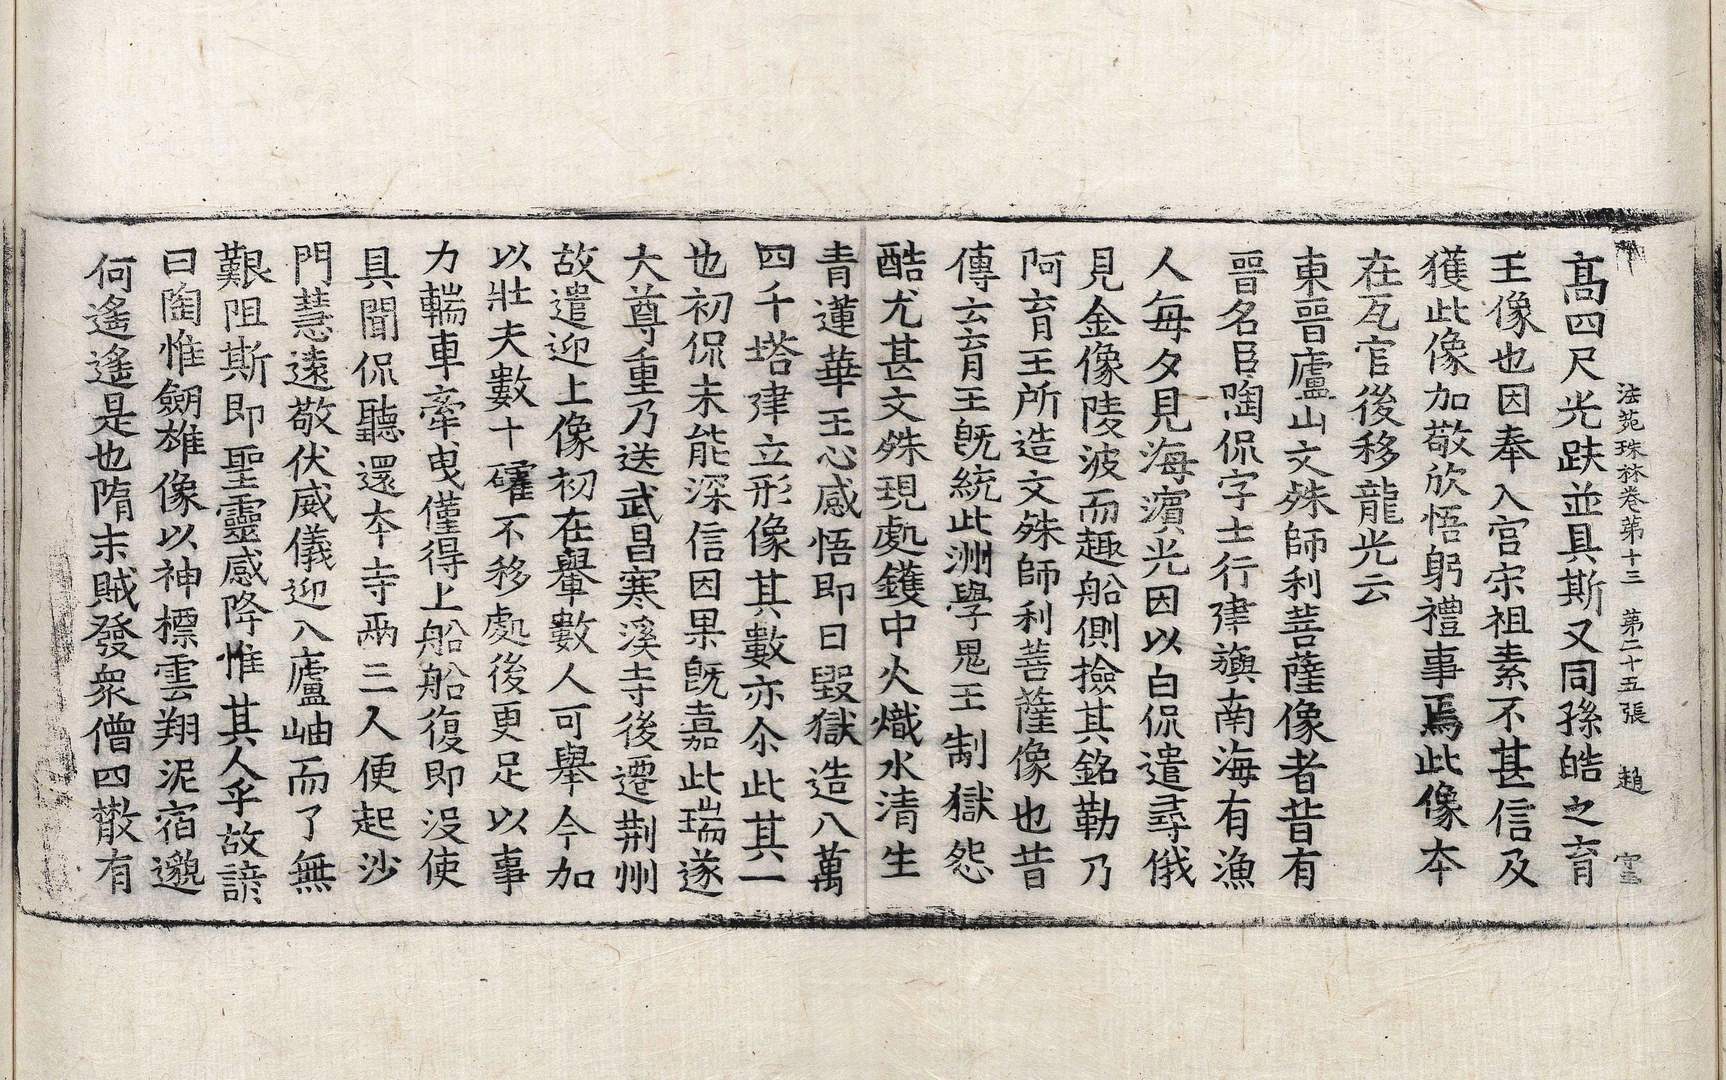 法苑珠林卷第十三 第二十五張 趙
高四尺光趺並具斯又同孫皓之育
王像也因奉入宮宋祖素不甚信及
獲此像加敬欣悟躬禮事焉此像本
在瓦官後移龍光云
東晉廬山文殊師利菩薩像者昔有
晉名臣陶侃字士行建旟南海有漁
人每夕見海濵光因以白侃遣尋俄
見金像陵波而趣船側撿其銘勒乃
阿育王所造文殊師利菩薩像也昔
傳云育王旣統此洲學鬼王制獄怨
酷尤甚文殊現處鑊中火熾水清生
青蓮華王心感悟即日毀獄造八萬
四千塔建立形像其數亦尒此其一
也初侃未能深信因果旣嘉此瑞遂
大尊重乃送武昌寒溪寺後遷荆州
故遣迎上像初在轝數人可舉今加
以壯夫數十確不移處後更足以事
力輲車牽曳僅得上船船復即没使
具聞侃聽還本寺兩三人便起沙
門慧遠敬伏威儀迎入廬岫而了無
艱阻斯即聖靈感降惟其人乎故諺
曰陶惟劒雄像以神標雲翔泥宿邈
何遙遙是也隋末賊發衆僧四散有